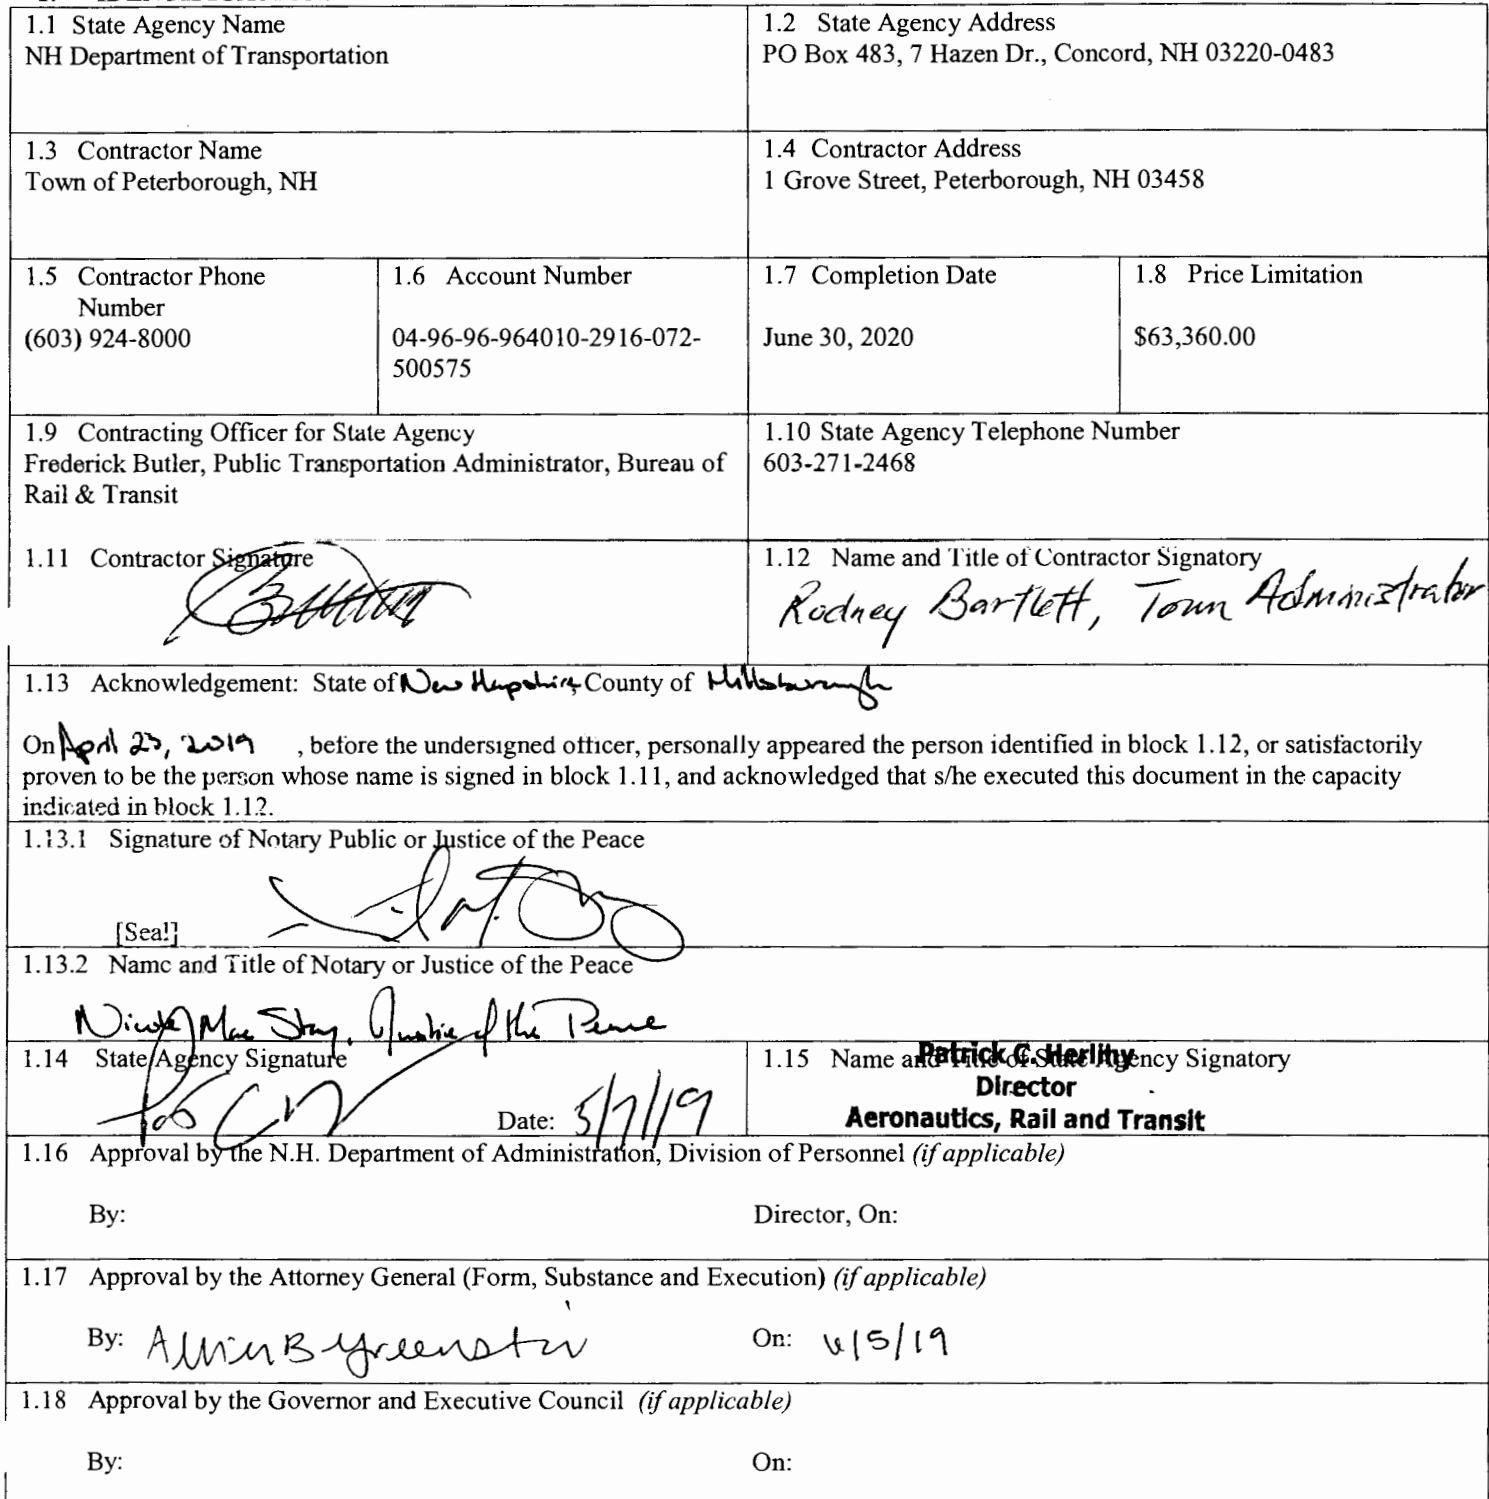 1.1 State Agency Name
NH Department of Transportation
1.2 State Agency Address
PO Box 483, 7 Hazen Dr., Concord, NH 03220-0483
1.3 Contractor Name
Town of Peterborough, NH
1.4 Contractor Address
1 Grove Street, Peterborough, NH 03458
1.5 Contractor Phone
Number
(603) 924-8000
1.6 Account Number
04-96-96-964010-2916-072-
500575
1.7 Completion Date
June 30, 2020
1.8 Price Limitation
$63,360.00
1.9 Contracting Officer for State Agency
Frederick Butler, Public Transportation Administrator, Bureau of
Rail & Transit
1.10 State Agency Telephone Number
603-271-2468
1.11 Contractor Signature
1.12 Name and Title of Contractor Signatory
Rodney Bartlett, Town Administrator
1.13 Acknowledgement: State of New Hampshire County of Hillsborough
On April 23, 2019 , before the undersigned officer, personally appeared the person identified in block 1.12, or satisfactorily
proven to be the person whose name is signed in block 1.11, and acknowledged that s/he executed this document in the capacity
indicated in block 1.12.
1.13.1 Signature of Notary Public or Justice of the Peace
[Seal]
1.13.2 Name and Title of Notary or Justice of the Peace
Nicole MacStay, Justice of the Peace
1.14 State Agency Signature
Date: 5/7/19
1.15 Name and Title of State Agency Signatory
Patrick C. Herlihy
Director
Aeronautics, Rail and Transit
1.16 Approval by the N.H. Department of Administration, Division of Personnel (if applicable)
By:
Director, On:
1.17 Approval by the Attorney General (Form, Substance and Execution) (if applicable)
By: Allison B Greenstein
On: 6/5/19
1.18 Approval by the Governor and Executive Council (if applicable)
By:
On: